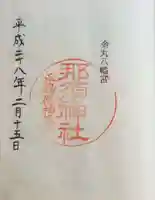 金丸八幡宮
那須神社
平成二八年二月十五日